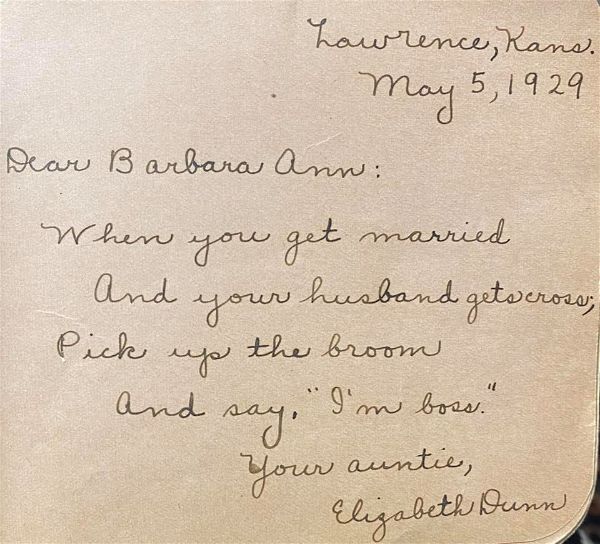 Lawrence, Kans.
May 5, 1929
Dear Barbara Ann:
When you get married
And your husband gets cross;
Pick up the broom
And say, "I'm boss."
Your auntie,
Elizabeth Dunn